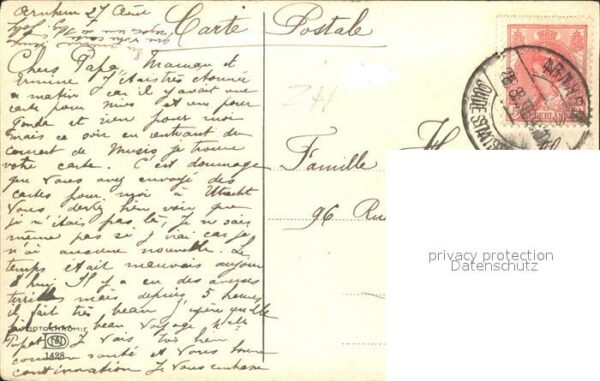 Arnhem 27 Août
Carte Postale
Chers Papa, Maman et
Ermine J'étais très étonnée
ce matin car il y avait une
carte pour Mies et un pour
Gonda et rien pour moi
mais ce soir en rentrant du
concert de Musis je trouve
votre carte. C'est dommage
que vous avez envoyé des
cartes pour moi à Utrecht
Vous devez bien voir que
je n'étais pas là, je ne sais
même pas si j'irai car je
n'ai aucune nouvelle. Le
temps était mauvais aujour
d'hui. Il y a eu des averses
terribles mais depuis 5 heures
il fait très beau j'espère qu'elle
beau voyage
Papa. Je vais très bien
santé et vous bonne
continuation Je vous embrasse
PHOTOCHROMIE
1428
ZH
Famille H
96 Rue
ARNHEM
NEDERLAND
privacy protection
Datenschutz